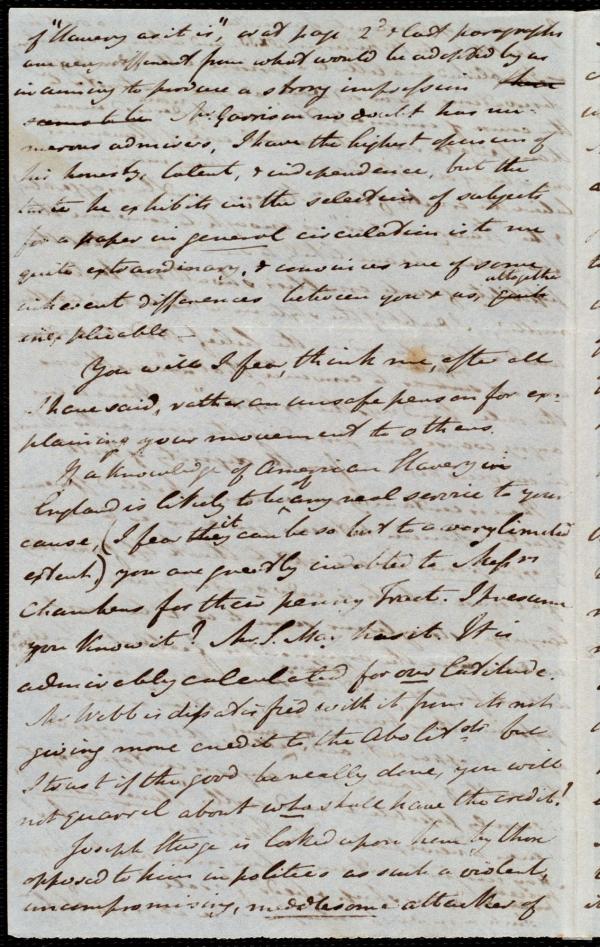 of "Slavery as it is", as at page 2d & last paragraphs
are very different from what would be adopted by us
in aiming to produce a strong impression
seems to be Mr. Garrison no doubt has nu-
merous admirers, I have the highest opinion of
his honesty, talent, & independence, but the
taste he exhibits in the selection of subjects
for a paper in general circulation is to me
quite extraordinary, & convinces me of some
altogether
inherent differences between you & us, quite
inexplicable –
You will I fear, think me, after all
I have said, rather an unsafe person for ex-
plaining your movement to others.
If a knowledge of American Slavery in
England is likely to be of any real service to your
cause, (I fear they it can be so but to a very limited
extent) you are greatly indebted to Messrs
Chambers for their penny Tract. I presume
you know it? Mr. S. May has it. It is
admirably calculated for our Latitude.
Mr Webb is dissatisfied with it from its not
giving more credit to the Abolitsts but
I trust if the good be really done, you will
not quarrel about who shall have the credit!
Joseph Sturge is looked upon here by those
opposed to him in politics as such a violent,
uncompromising, meddlesome attacker of